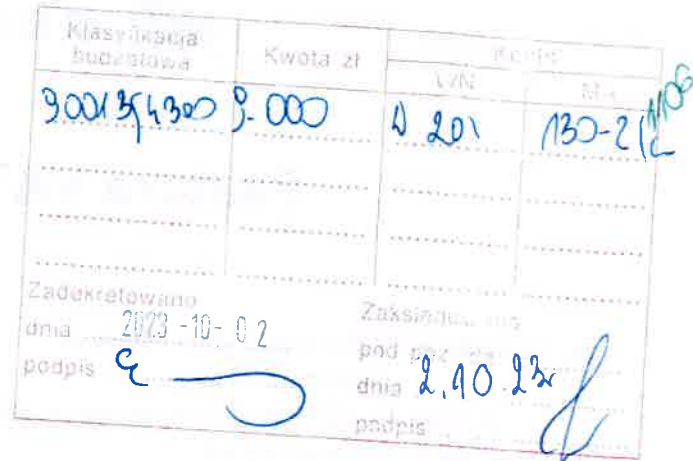 Klasyfikacja budżetowa Kwota zł Konto
WN Ma
90013/4300 9.000 201 130-2
Zadekretowano
dnia 2023-10-02
podpis
Zaksięgowano
pod poz.
dnia 2.10.23r
podpis